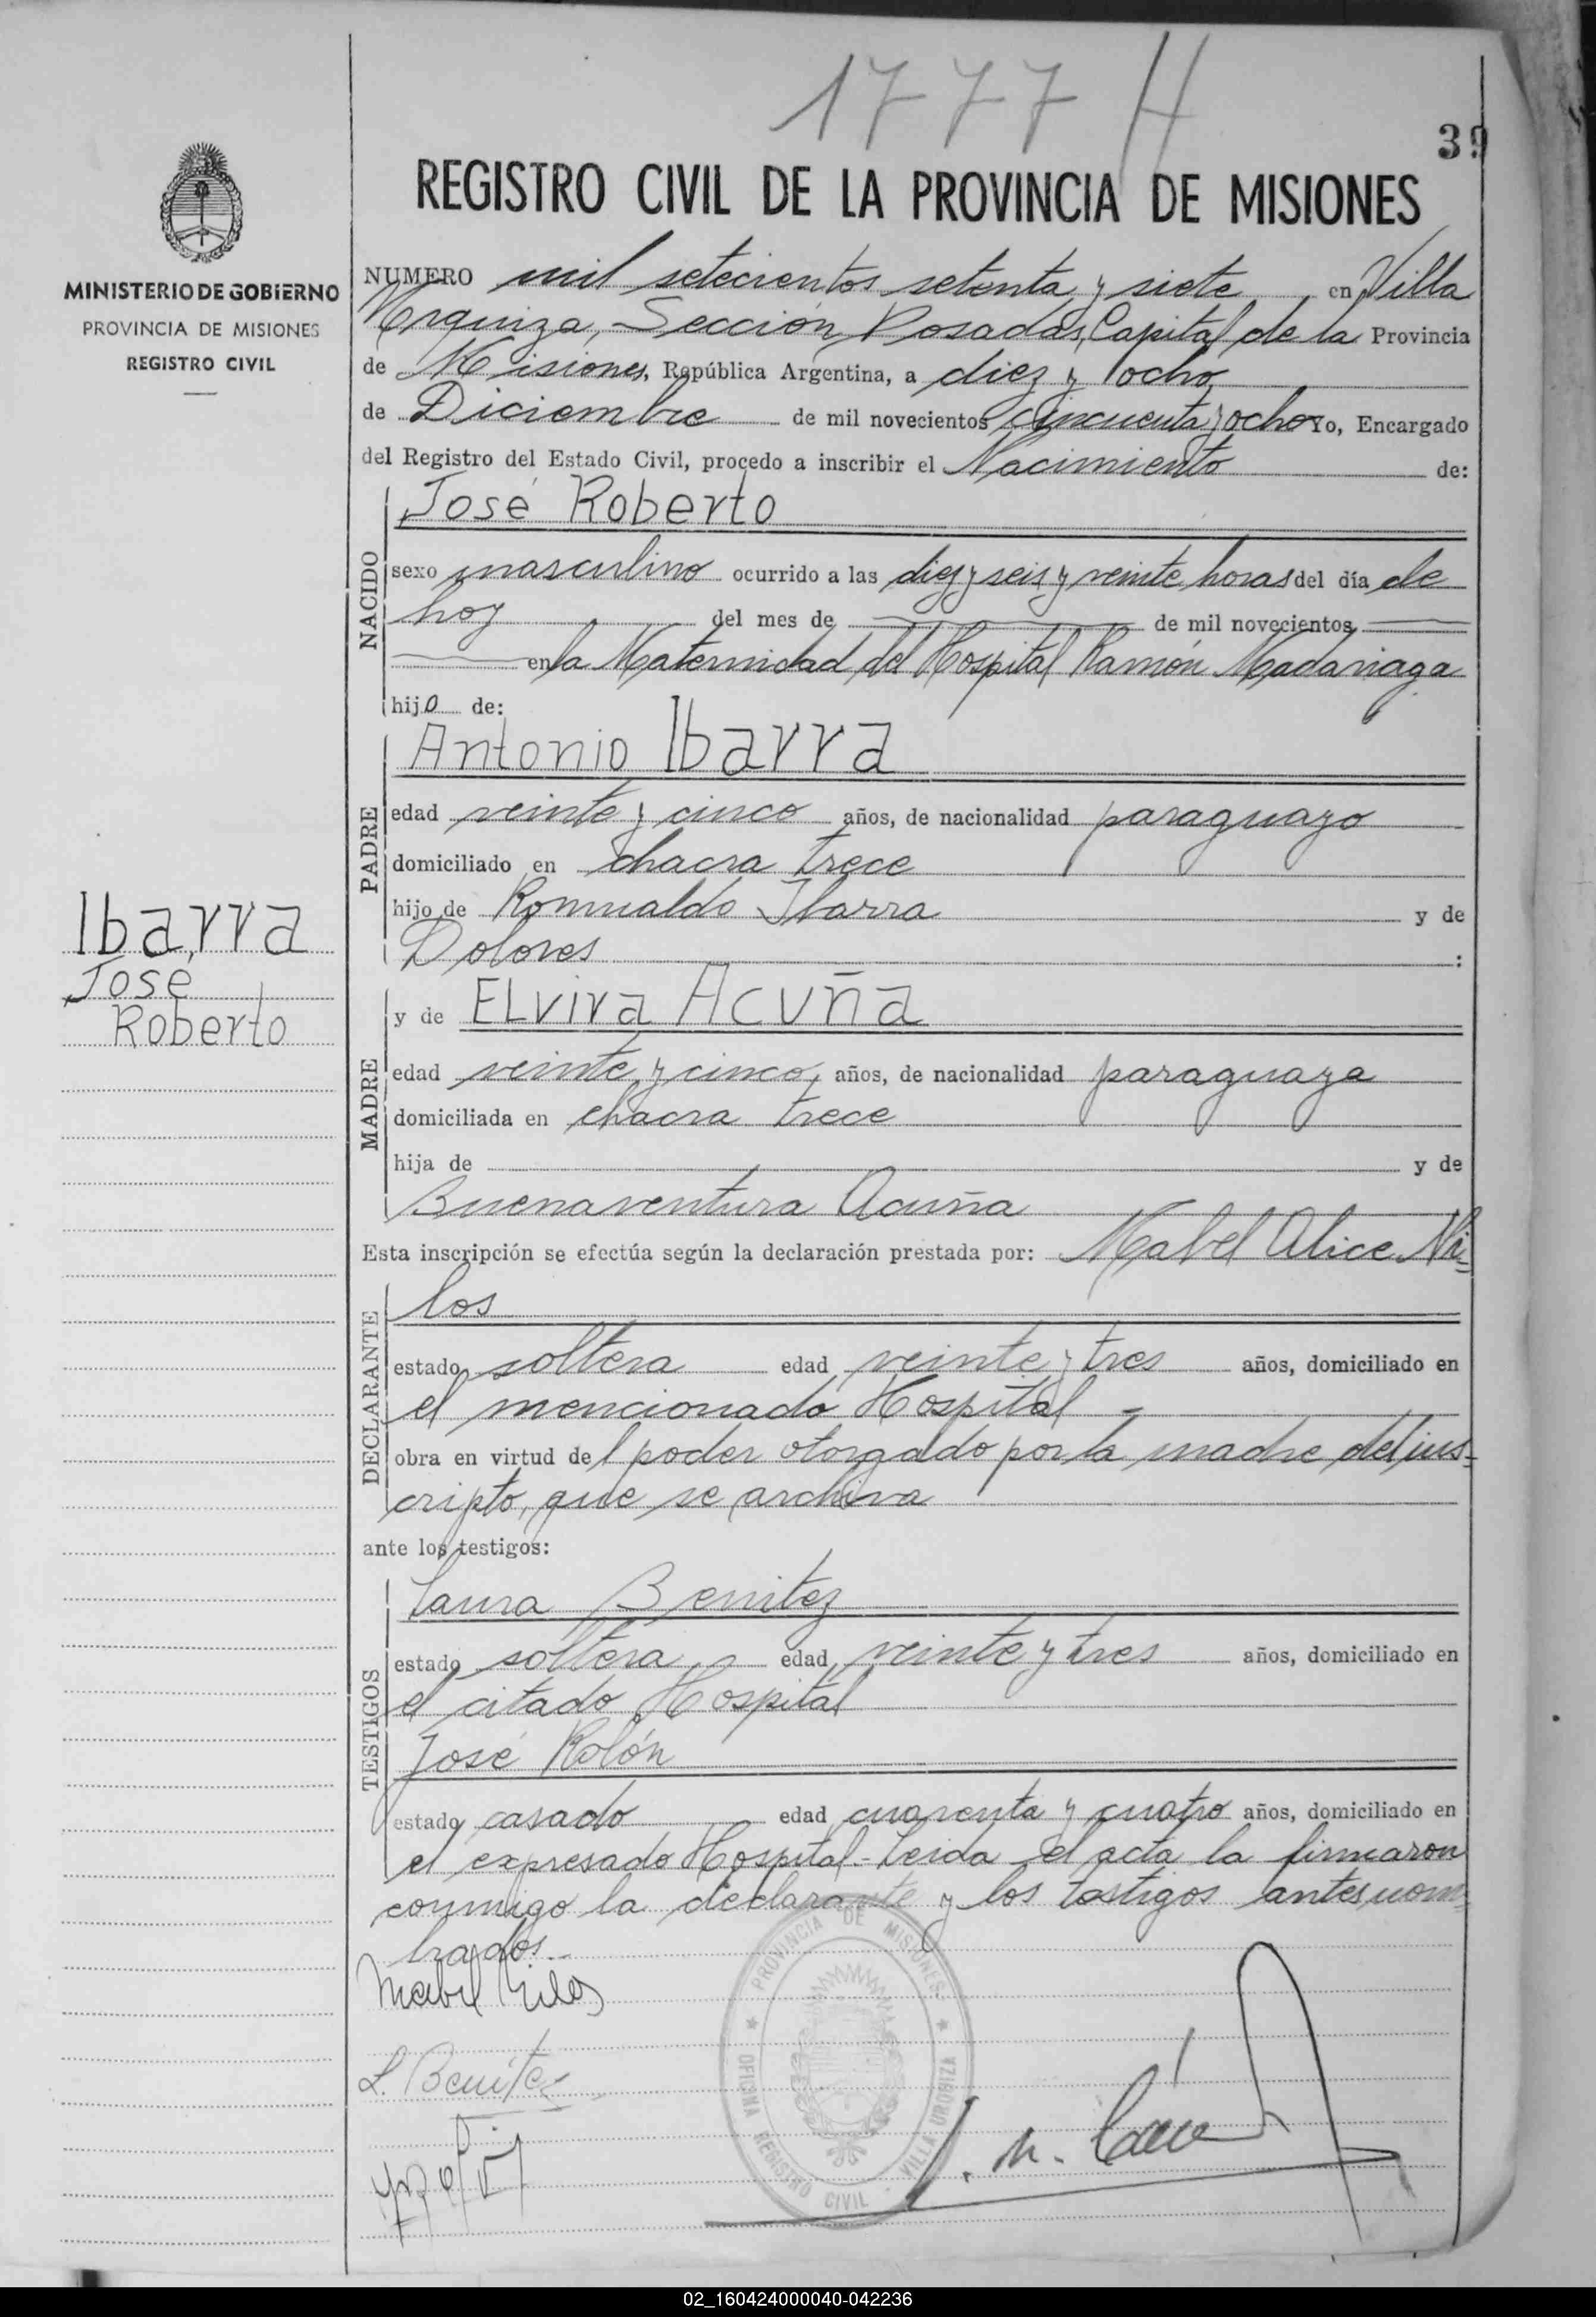 1777 H
39
MINISTERIO DE GOBIERNO
PROVINCIA DE MISIONES
REGISTRO CIVIL
Ibarra
José
Roberto
REGISTRO CIVIL DE LA PROVINCIA DE MISIONES
NUMERO mil setecientos setenta y siete en Villa
Urquiza, Sección Posadas, Capital de la Provincia
de Misiones, República Argentina, a diez y ocho
de Diciembre de mil novecientos cincuenta y ocho Yo, Encargado
del Registro del Estado Civil, procedo a inscribir el Nacimiento de:
NACIDO
José Roberto
sexo masculino ocurrido a las diez y seis y veinte horas del día de
hoy del mes de de mil novecientos
en la Maternidad del Hospital Ramón Madariaga
hijo de:
PADRE
Antonio Ibarra
edad veinte y cinco años, de nacionalidad paraguayo
domiciliado en chacra trece
hijo de Romualdo Ibarra y de
Dolores :
MADRE
y de ELvira Acuña
edad veinte y cinco, años, de nacionalidad paraguaya
domiciliada en chacra trece
hija de y de
Buenaventura Acuña
Esta inscripción se efectúa según la declaración prestada por: Mabel Alice Ni-
los
DECLARANTE
estado soltera edad veinte y tres años, domiciliado en
el mencionado Hospital -
obra en virtud del poder otorgado por la madre del ins-
cripto, que se archiva
ante los testigos:
TESTIGOS
Laura Benitez
estado soltera edad veinte y tres años, domiciliado en
el citado Hospital
José Rolón
estado casado edad cuarenta y cuatro años, domiciliado en
el expresado Hospital - Leida el acta la firmaron
conmigo la declarante y los testigos antes nom-
brados.-
Mabel Nilos
L. Benitez
PROVINCIA DE MISIONES
OFICINA REGISTRO CIVIL - VILLA URQUIZA
02_160424000040-042236